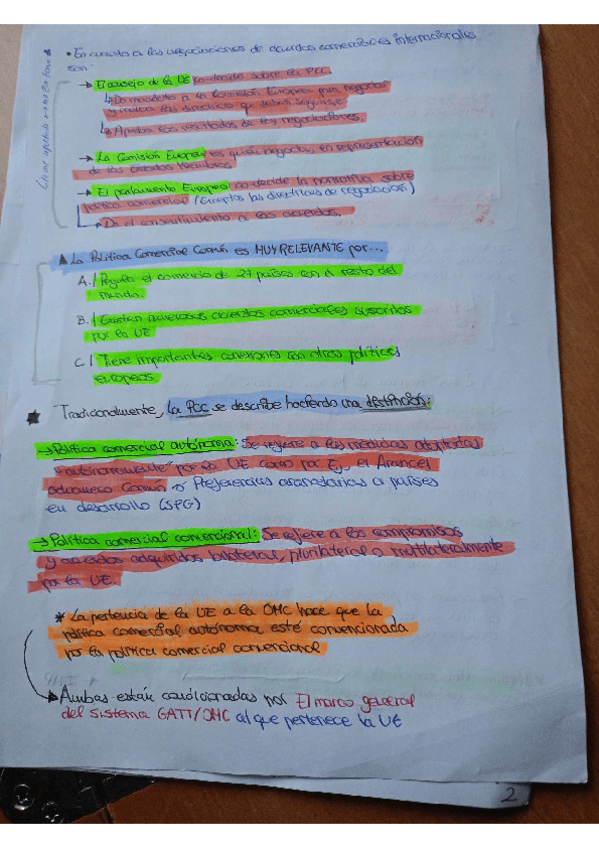 • En cuanto a las negociaciones de acuerdos comerciales internacionales
son:
→ El consejo de la UE codecide sobre la PCC.
↳ Da mandato a la Comisión Europea para negociar
y indica las directrices que deben seguirse
↳ Aprueba los resultados de las negociaciones.
→ La Comisión Europea es quién negocia, en representación
de los estados miembros
→ El parlamento Europeo codecide la normativa sobre
política comercial (Excepto las directrices de negociación)
Da el consentimiento a los acuerdos.
▲ La Política Comercial Común es MUY RELEVANTE por...
A./ Regula el comercio de 27 países con el resto del
mundo.
B./ Existen numerosos acuerdos comerciales suscritos
por la UE
C./ Tiene importantes conexiones con otras políticas
europeas
★ Tradicionalmente, la PCC se describe haciendo una distinción:
→ Política comercial autónoma: Se refiere a las medidas adoptadas
"autónomamente" por la UE como por Ej, el Arancel
aduanero Común o Preferencias arancelarias a países
en desarrollo (SPG)
→ Política comercial convencional: Se refiere a los compromisos
y acuerdos adquiridos bilateral, plurilateral o multilateralmente
por la UE.
* La pertencia de la UE a la OMC hace que la
política comercial autónoma esté convencionada
por la política comercial convencional
→ Ambas están condicionadas por El marco general
del Sistema GATT/OMC al que pertenece la UE
2